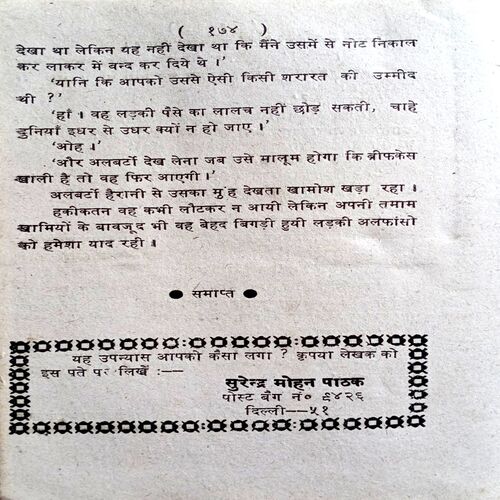 ( १७४ )
देखा था लेकिन यह नहीं देखा था कि मैंने उसमें से नोट निकाल
कर लाकर में बन्द कर दिये थे ।'
'यानि कि आपको उससे ऐसी किसी शरारत की उम्मीद
थी ?'
'हां । वह लड़की पैसे का लालच नहीं छोड़ सकती, चाहे
दुनियाँ इधर से उधर क्यों न हो जाए ।'
'ओह ।'
'और अलबर्टो देख लेना जब उसे मालूम होगा कि ब्रीफकेस
खाली है तो वह फिर आएगी ।'
अलबर्टो हैरानी से उसका मुंह देखता खामोश खड़ा रहा ।
हकीकतन वह कभी लौटकर न आयी लेकिन अपनी तमाम
खामियों के बावजूद भी वह बेहद बिगड़ी हुयी लड़की अलफांसो
को हमेशा याद रही ।
● समाप्त ●
यह उपन्यास आपको कैसा लगा ? कृपया लेखक को
इस पते पर लिखें :—
सुरेन्द्र मोहन पाठक
पोस्ट बैग नं० ९४२६
दिल्ली—५१